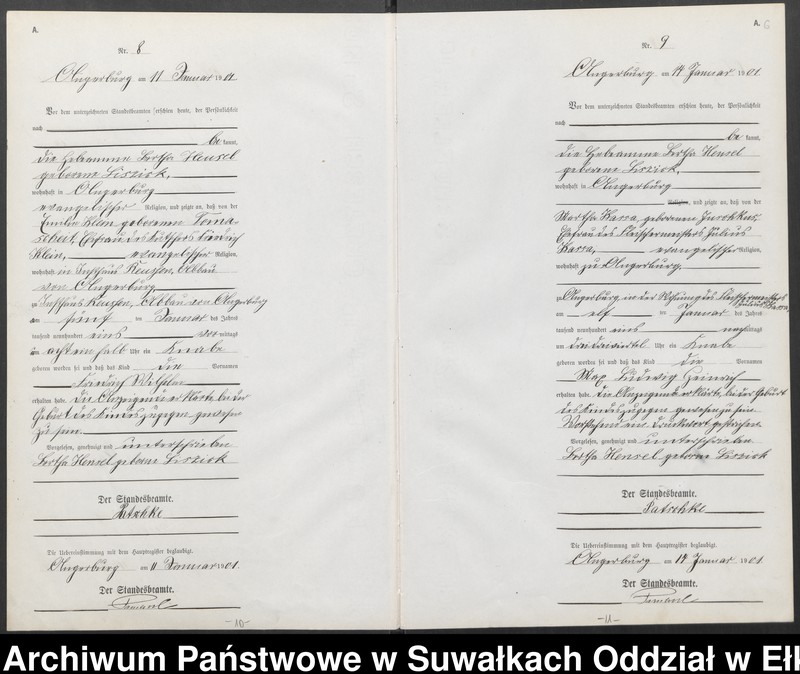 A.
Nr. 8
Angerburg am 11 Januar 1901.
Vor dem unterzeichneten Standesbeamten erschien heute, der Persönlichkeit
nach
be kannt,
die Hebamme Bertha Hensel
geborene Liszick,
wohnhaft in Angerburg
evangelischer Religion, und zeigte an, daß von der
Emilie Klein geborenen
Ehefrau des
Klein, evangelischer Religion,
wohnhaft im Insthaus Reussen, Abbau
von Angerburg
zu Insthaus Reussen, Abbau von Angerburg
am fünf ten Januar des Jahres
tausend neunhundert eins vor mittags
um acht ein halb Uhr ein Knabe
geboren worden sei und daß das Kind die Vornamen
Friedrich Wilhelm
erhalten habe. Die Anzeigende erklärte bei der
Geburt des Kindes zugegen gewesen
zu sein.
Vorgelesen, genehmigt und unterschrieben
Bertha Hensel geborene Liszick
Der Standesbeamte.
Patschke
Die Uebereinstimmung mit dem Hauptregister beglaubigt.
Angerburg am 11 Januar 1901.
Der Standesbeamte.
-10-
A. 6
Nr. 9
Angerburg am 14 Januar 1901.
Vor dem unterzeichneten Standesbeamten erschien heute, der Persönlichkeit
nach
be kannt,
die Hebamme Bertha Hensel
geborene Liszick,
wohnhaft in Angerburg
Religion, und zeigte an, daß von der
Martha Kassa, geborenen
Ehefrau des Fleischermeisters Julius
Kassa, evangelischer Religion,
wohnhaft zu Angerburg
zu Angerburg in der Wohnung des Fleischermeisters
Julius Kassa,
am elf ten Januar des Jahres
tausend neunhundert eins nachmittags
um dreiviertel Uhr ein Knabe
geboren worden sei und daß das Kind die Vornamen
Max Ludwig Heinrich
erhalten habe. Die Anzeigende erklärte, bei der Geburt
des Kindes zugegen gewesen zu sein.
Vorstehend ein Druckwort gestrichen.
Vorgelesen, genehmigt und unterschrieben
Bertha Hensel geborene Liszick
Der Standesbeamte.
Patschke
Die Uebereinstimmung mit dem Hauptregister beglaubigt.
Angerburg am 14 Januar 1901.
Der Standesbeamte.
-11-
Archiwum Państwowe w Suwałkach Oddział w Ełk